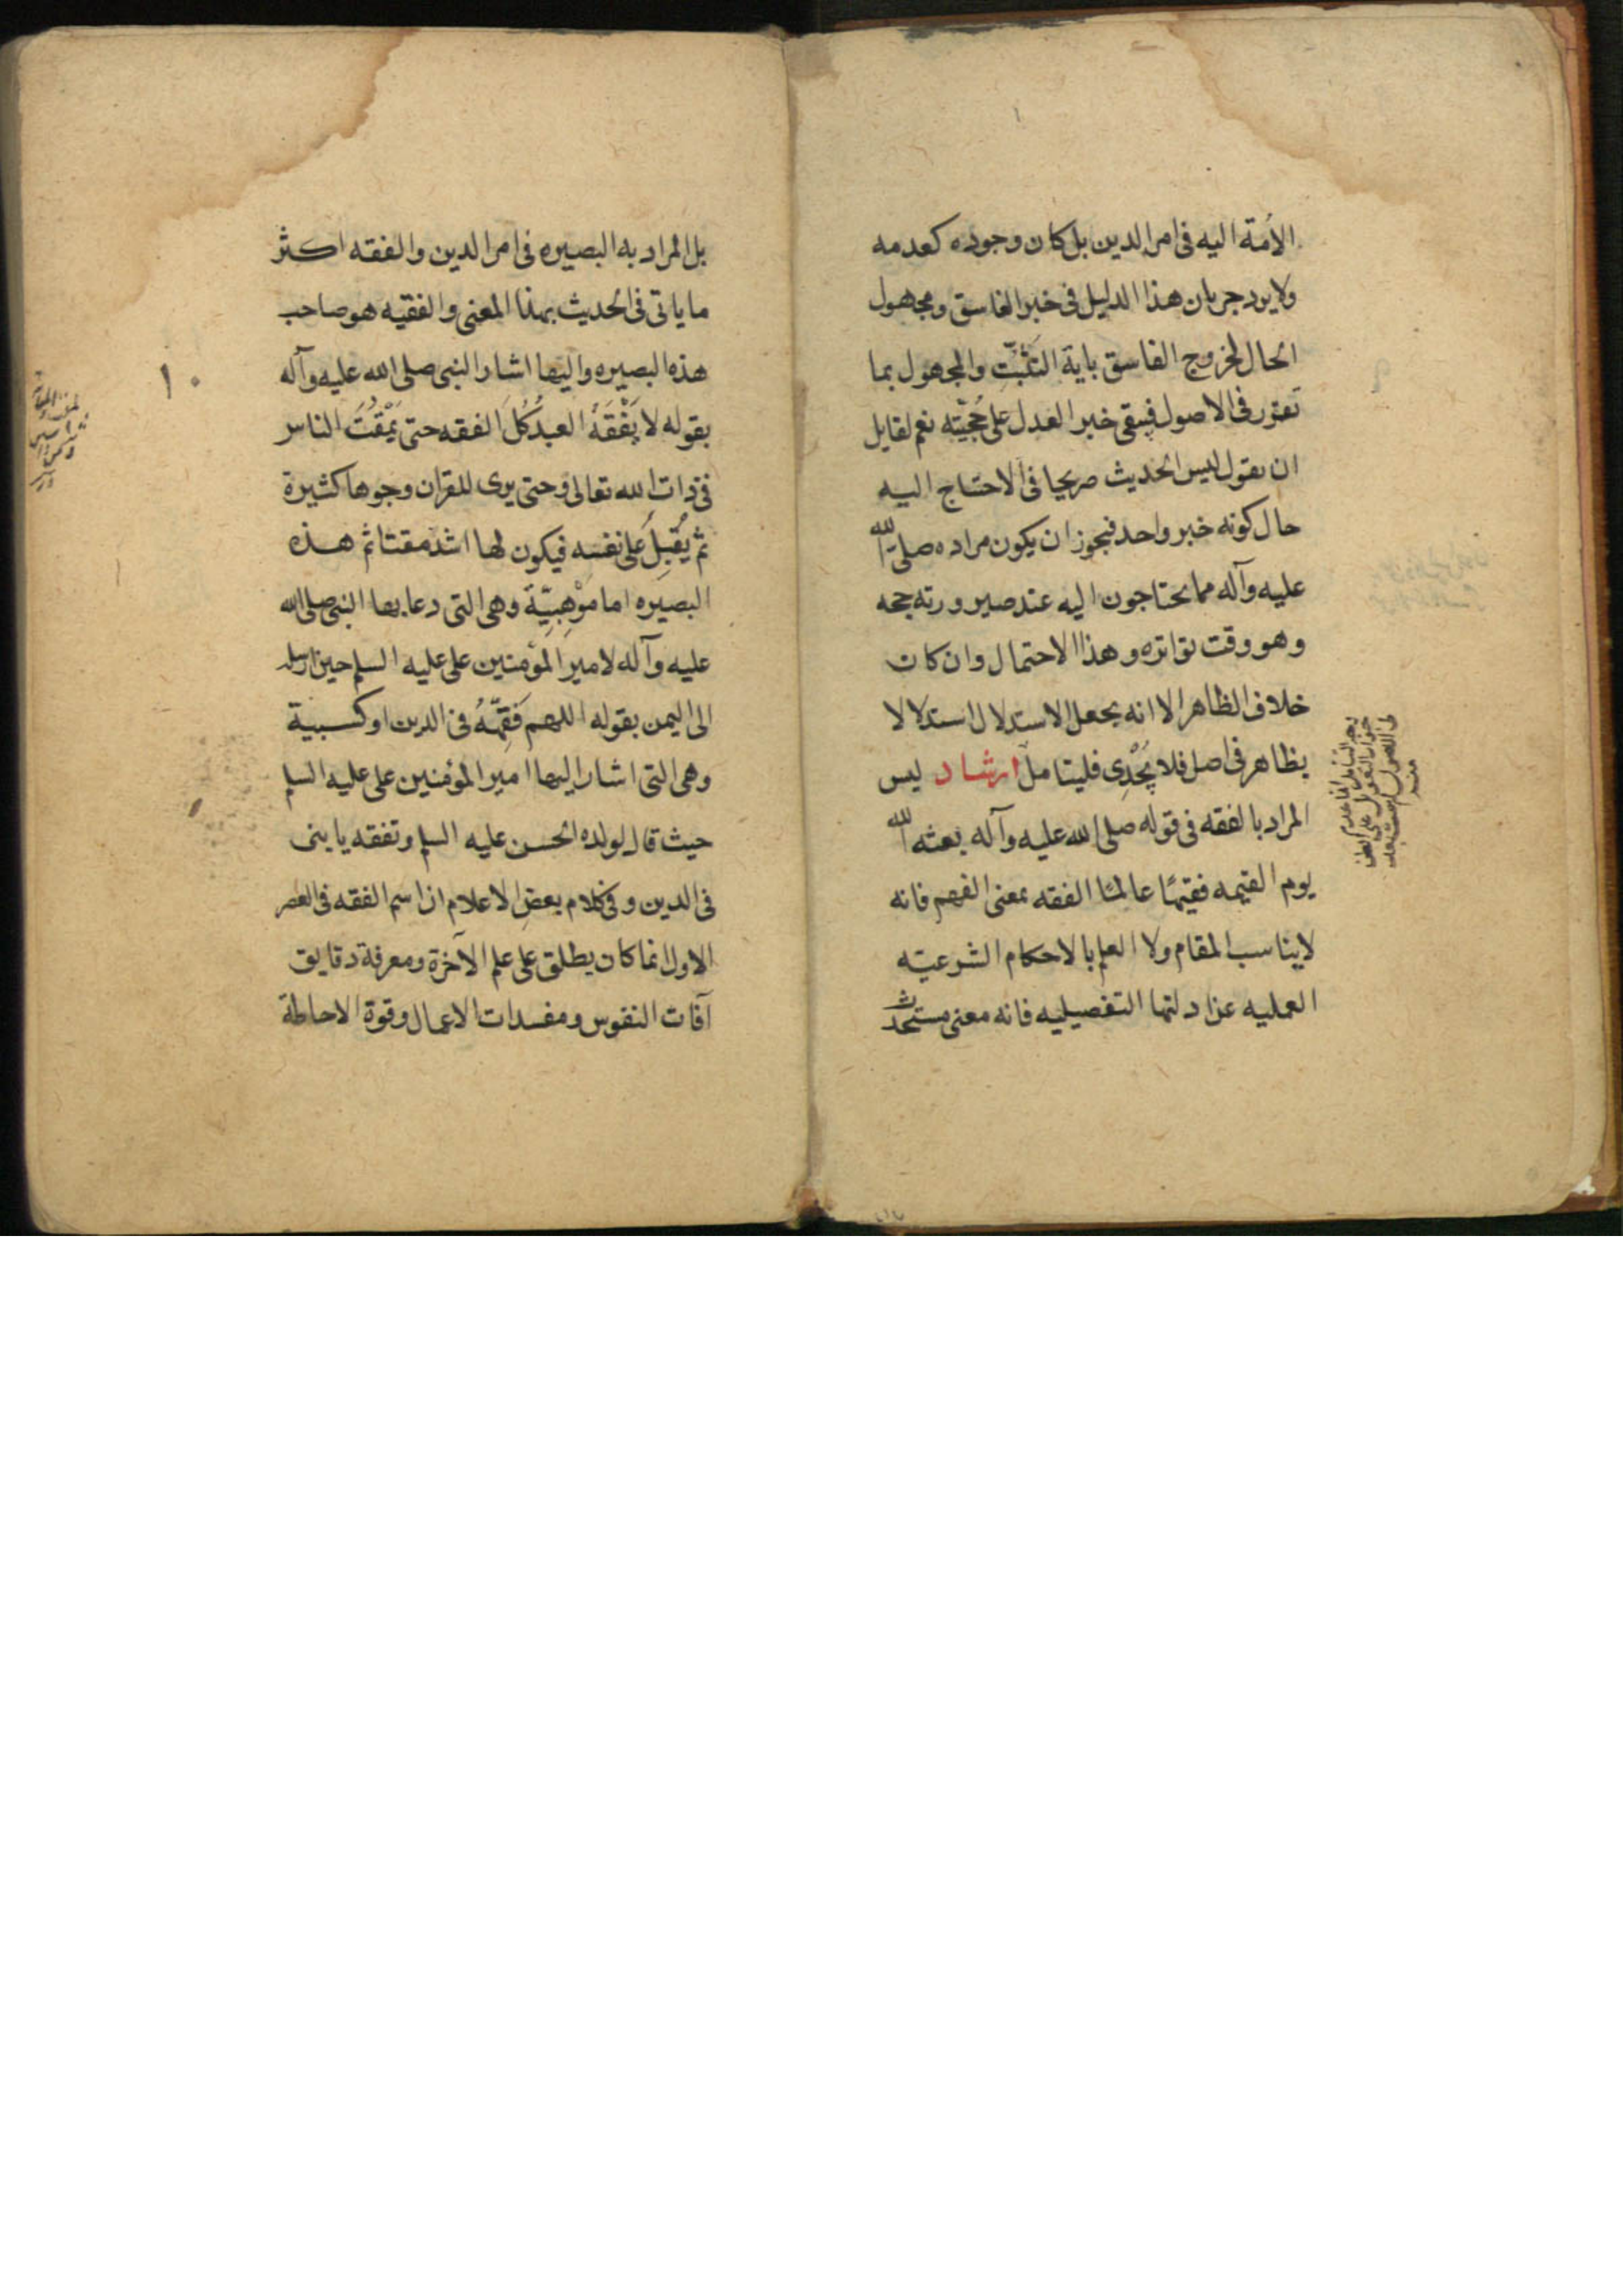 الأمة اليه فى امر الدين بل كان وجوده كعدمه
ولا يرد جريان هذا الدليل فى خبر الفاسق ومجهول
الحال لخروج الفاسق باية التثبّت والمجهول بما
تقرر فى الاصول فيبقى خبر العدل على حُجّيته نعم لقايل
ان يقول ليس الحديث صريحا فى الاحتياج اليه
حال كونه خبر واحد فيجوز ان يكون مراده صلى الله
عليه وآله مما يحتاجون اليه عند صيرورته حجه
وهو وقت تواتره وهذا الاحتمال وان كان
خلاف الظاهر الا انه يجعل الاستدلال استدلالا
بظاهر فى اصل فلا يُجْدِى فليتامل ارشاد ليس
المراد بالفقه فى قوله صلى الله عليه وآله بعثه الله
يوم القيمه فقيهًا عالمًا الفقه بمعنى الفهم فانه
لايناسب المقام ولا العلم بالاحكام الشرعيّه
العمليه عن ادلتها التفصيليه فانه معنى مستحدث
بل المراد به البصيره فى امر الدين والفقه اكثر
ما ياتى فى الحديث بهذا المعنى والفقيه هو صاحب
هذه البصيره واليها اشار النبى صلى الله عليه وآله
١٠
بقوله لا يَفْقَهُ العبدُ كُلَ الفقه حتى يَمْقُتَ الناس
فى ذات الله تعالى وحتى يرى للقران وجوها كثيرة
ثم يُقْبِلُ على نفسه فيكون لها اشد مقتا ثم هذه
البصيره اما مَوْهِبِيّة وهى التى دعا بها النبى صلى الله
عليه وآله لامير المؤمنين على عليه السلم حين ارسله
الى اليمن بقوله اللهم فَقِّهْهُ فى الدين او كسبية
وهى التى اشار اليها امير المؤمنين على عليه السلم
حيث قال لولده الحسن عليه السلم وتفقه يا بنى
فى الدين وفى كلام بعض الاعلام ان اسم الفقه فى العصر
الاول انما كان يطلق على علم الآخرة ومعرفة دقايق
آفات النفوس ومفسدات الاعمال وقوة الاحاطة